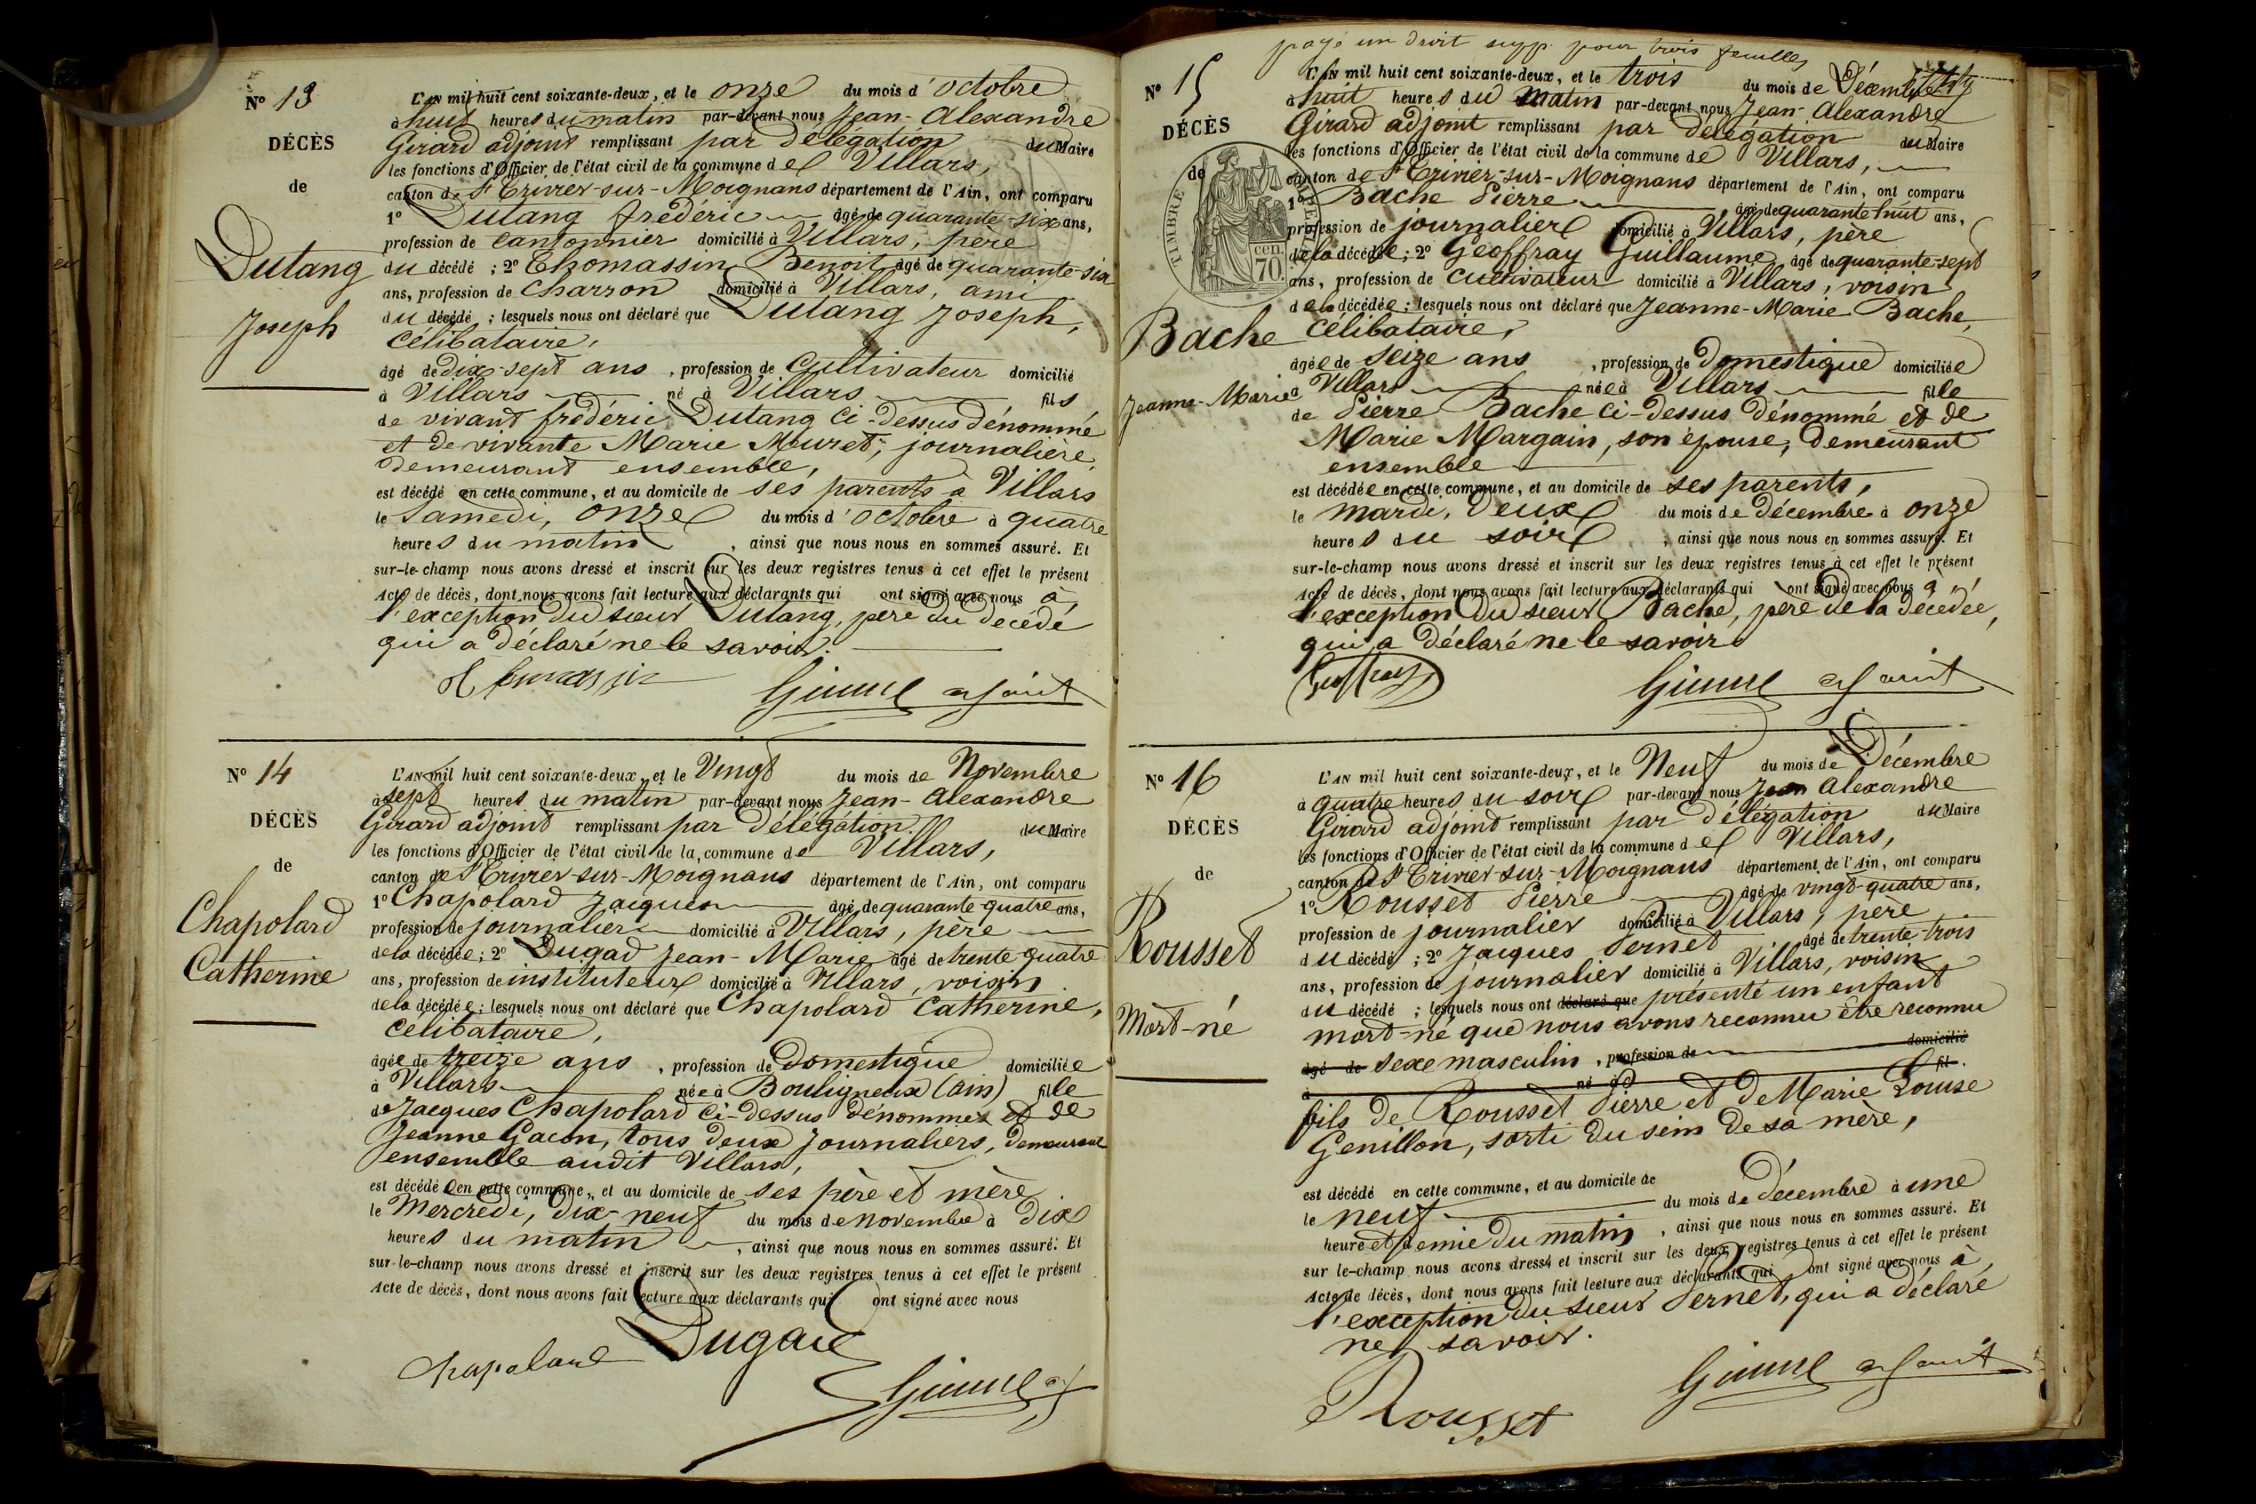 N° 13
DÉCÈS
de
Dutang
Joseph
L'AN mil huit cent soixante-deux, et le onze du mois d'octobre
à huit heures du matin par-devant nous Jean-Alexandre
Girard adjoint remplissant par délégation du Maire
les fonctions d'Officier de l'état civil de la commune de Villars,
canton de St Trivier-sur-Moignans département de l'Ain, ont comparu
1° Dutang frédéric âgé de quarante-six ans,
profession de cantonnier domicilié à Villars, père
du décédé ; 2° Thomassin Benoit âgé de quarante-six
ans, profession de charron domicilié à Villars, ami
du décédé ; lesquels nous ont déclaré que Dutang Joseph,
célibataire,
âgé de dix-sept ans, profession de cultivateur domicilié
à Villars né à Villars fils
de vivant frédéric Dutang ci-dessus dénommé
et de vivante Marie Meuret, journalière,
demeurant ensemble,
est décédé en cette commune, et au domicile de ses parents à Villars
le Samedi, onze du mois d'octobre à quatre
heures du matin, ainsi que nous nous en sommes assuré. Et
sur-le-champ nous avons dressé et inscrit sur les deux registres tenus à cet effet le présent
Acte de décès, dont nous avons fait lecture aux déclarants qui ont signé avec nous à
l'exception du sieur Dutang, père du décédé
qui a déclaré ne le savoir.
Thomassin Girard adjoint
N° 14
DÉCÈS
de
Chapolard
Catherine
L'AN mil huit cent soixante-deux, et le Vingt du mois de Novembre
à sept heures du matin par-devant nous Jean-Alexandre
Girard adjoint remplissant par délégation du Maire
les fonctions d'Officier de l'état civil de la commune de Villars,
canton de St Trivier-sur-Moignans département de l'Ain, ont comparu
1° Chapolard Jacques âgé de quarante-quatre ans,
profession de journalier domicilié à Villars, père
de la décédée ; 2° Dugad Jean-Marie âgé de trente-quatre
ans, profession de instituteur domicilié à Villars, voisin
de la décédée ; lesquels nous ont déclaré que Chapolard Catherine,
célibataire,
âgée de treize ans, profession de Domestique domiciliée
à Villars née à Bouligneux (Ain) fille
de Jacques Chapolard ci-dessus dénommé et de
Jeanne Gacon, tous deux journaliers, demeurant
ensemble audit Villars,
est décédée en cette commune, et au domicile de ses père et mère
le Mercredi, dix-neuf du mois de novembre à dix
heures du matin, ainsi que nous nous en sommes assuré. Et
sur-le-champ nous avons dressé et inscrit sur les deux registres tenus à cet effet le présent
Acte de décès, dont nous avons fait lecture aux déclarants qui ont signé avec nous
Chapolard Dugad
Girard
payé un droit supp. pour trois feuilles
N° 15
DÉCÈS
de
TIMBRE IMPÉRIAL
70 cen.
Bache
Jeanne-Marie
L'AN mil huit cent soixante-deux, et le trois du mois de Décembre
à huit heures du matin par-devant nous Jean-Alexandre
Girard adjoint remplissant par délégation du Maire
les fonctions d'Officier de l'état civil de la commune de Villars,
canton de St Trivier-sur-Moignans département de l'Ain, ont comparu
1° Bache Pierre âgé de quarante huit ans,
profession de journalier domicilié à Villars, père
de la décédée ; 2° Geoffray Guillaume, âgé de quarante-sept
ans, profession de cultivateur domicilié à Villars, voisin
de la décédée ; lesquels nous ont déclaré que Jeanne-Marie Bache,
célibataire,
âgée de seize ans, profession de Domestique domiciliée
à Villars née à Villars fille
de Pierre Bache ci-dessus dénommé et de
Marie Margain, son épouse, demeurant
ensemble
est décédée en cette commune, et au domicile de ses parents,
le mardi, deux du mois de décembre à onze
heures du soir, ainsi que nous nous en sommes assuré. Et
sur-le-champ nous avons dressé et inscrit sur les deux registres tenus à cet effet le présent
Acte de décès, dont nous avons fait lecture aux déclarants qui ont signé avec nous à
l'exception du sieur Bache, père de la décédée,
qui a déclaré ne le savoir
Geoffray Girard adjoint
N° 16
DÉCÈS
de
Rousset
Mort-né
L'AN mil huit cent soixante-deux, et le Neuf du mois de Décembre
à quatre heures du soir par-devant nous Jean Alexandre
Girard adjoint remplissant par délégation du Maire
les fonctions d'Officier de l'état civil de la commune de Villars,
canton de St Trivier-sur-Moignans département de l'Ain, ont comparu
1° Rousset Pierre âgé de vingt-quatre ans,
profession de journalier domicilié à Villars, père
du décédé ; 2° Jacques Pernet âgé de trente-trois
ans, profession de journalier domicilié à Villars, voisin
du décédé ; lesquels nous ont déclaré que présenté un enfant
mort-né que nous avons reconnu être reconnu
âgé de sexe masculin, profession de domicilié
à né à fil
fils de Rousset Pierre et de Marie Louise
Genillon, sorti du sein de sa mère,
est décédé en cette commune, et au domicile de
le neuf du mois de décembre à une
heure et demie du matin, ainsi que nous nous en sommes assuré. Et
sur le-champ nous avons dressé et inscrit sur les deux registres tenus à cet effet le présent
Acte de décès, dont nous avons fait lecture aux déclarants qui ont signé avec nous à
l'exception du sieur Pernet, qui a déclaré
ne savoir.
Rousset Girard adjoint